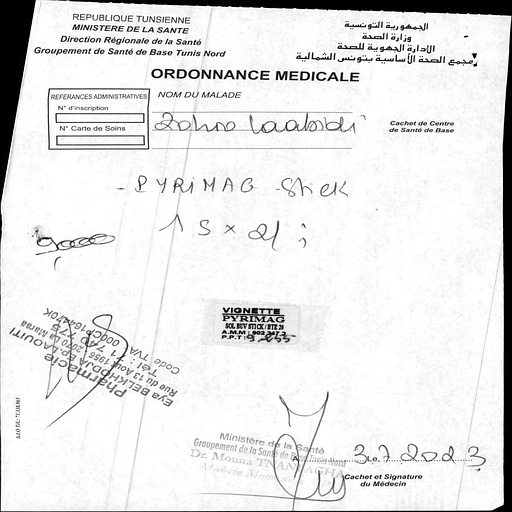 REPUBLIQUE TUNISIENNE
MINISTERE DE LA SANTE
Direction Régionale de la Santé
Groupement de Santé de Base Tunis Nord
الجمهورية التونسية
وزارة الصحة
الادارة الجهوية للصحة
مجمع الصحة الأساسية بتونس الشمالية
ORDONNANCE MEDICALE
REFERANCES ADMINISTRATIVES
N° d'inscription
N° Carte de Soins
NOM DU MALADE
Cachet de Centre
de Santé de Base
- PYRIMAG Stick
1 S x 2/j
VIGNETTE
PYRIMAG
SOL BUV STICK / BTE 20
A.M.M : 902 347 3
P.P.T : 9,255
Pharmacie
Eya BELKHODJA Ep LAOUITI
Rue du 13 Août 1956 2070 La Marsa
Code TVA
Ministère de la Santé
Groupement de la Santé de Base Tunis Nord
Dr. Mouna
3.7 2023
Cachet et Signature
du Médecin